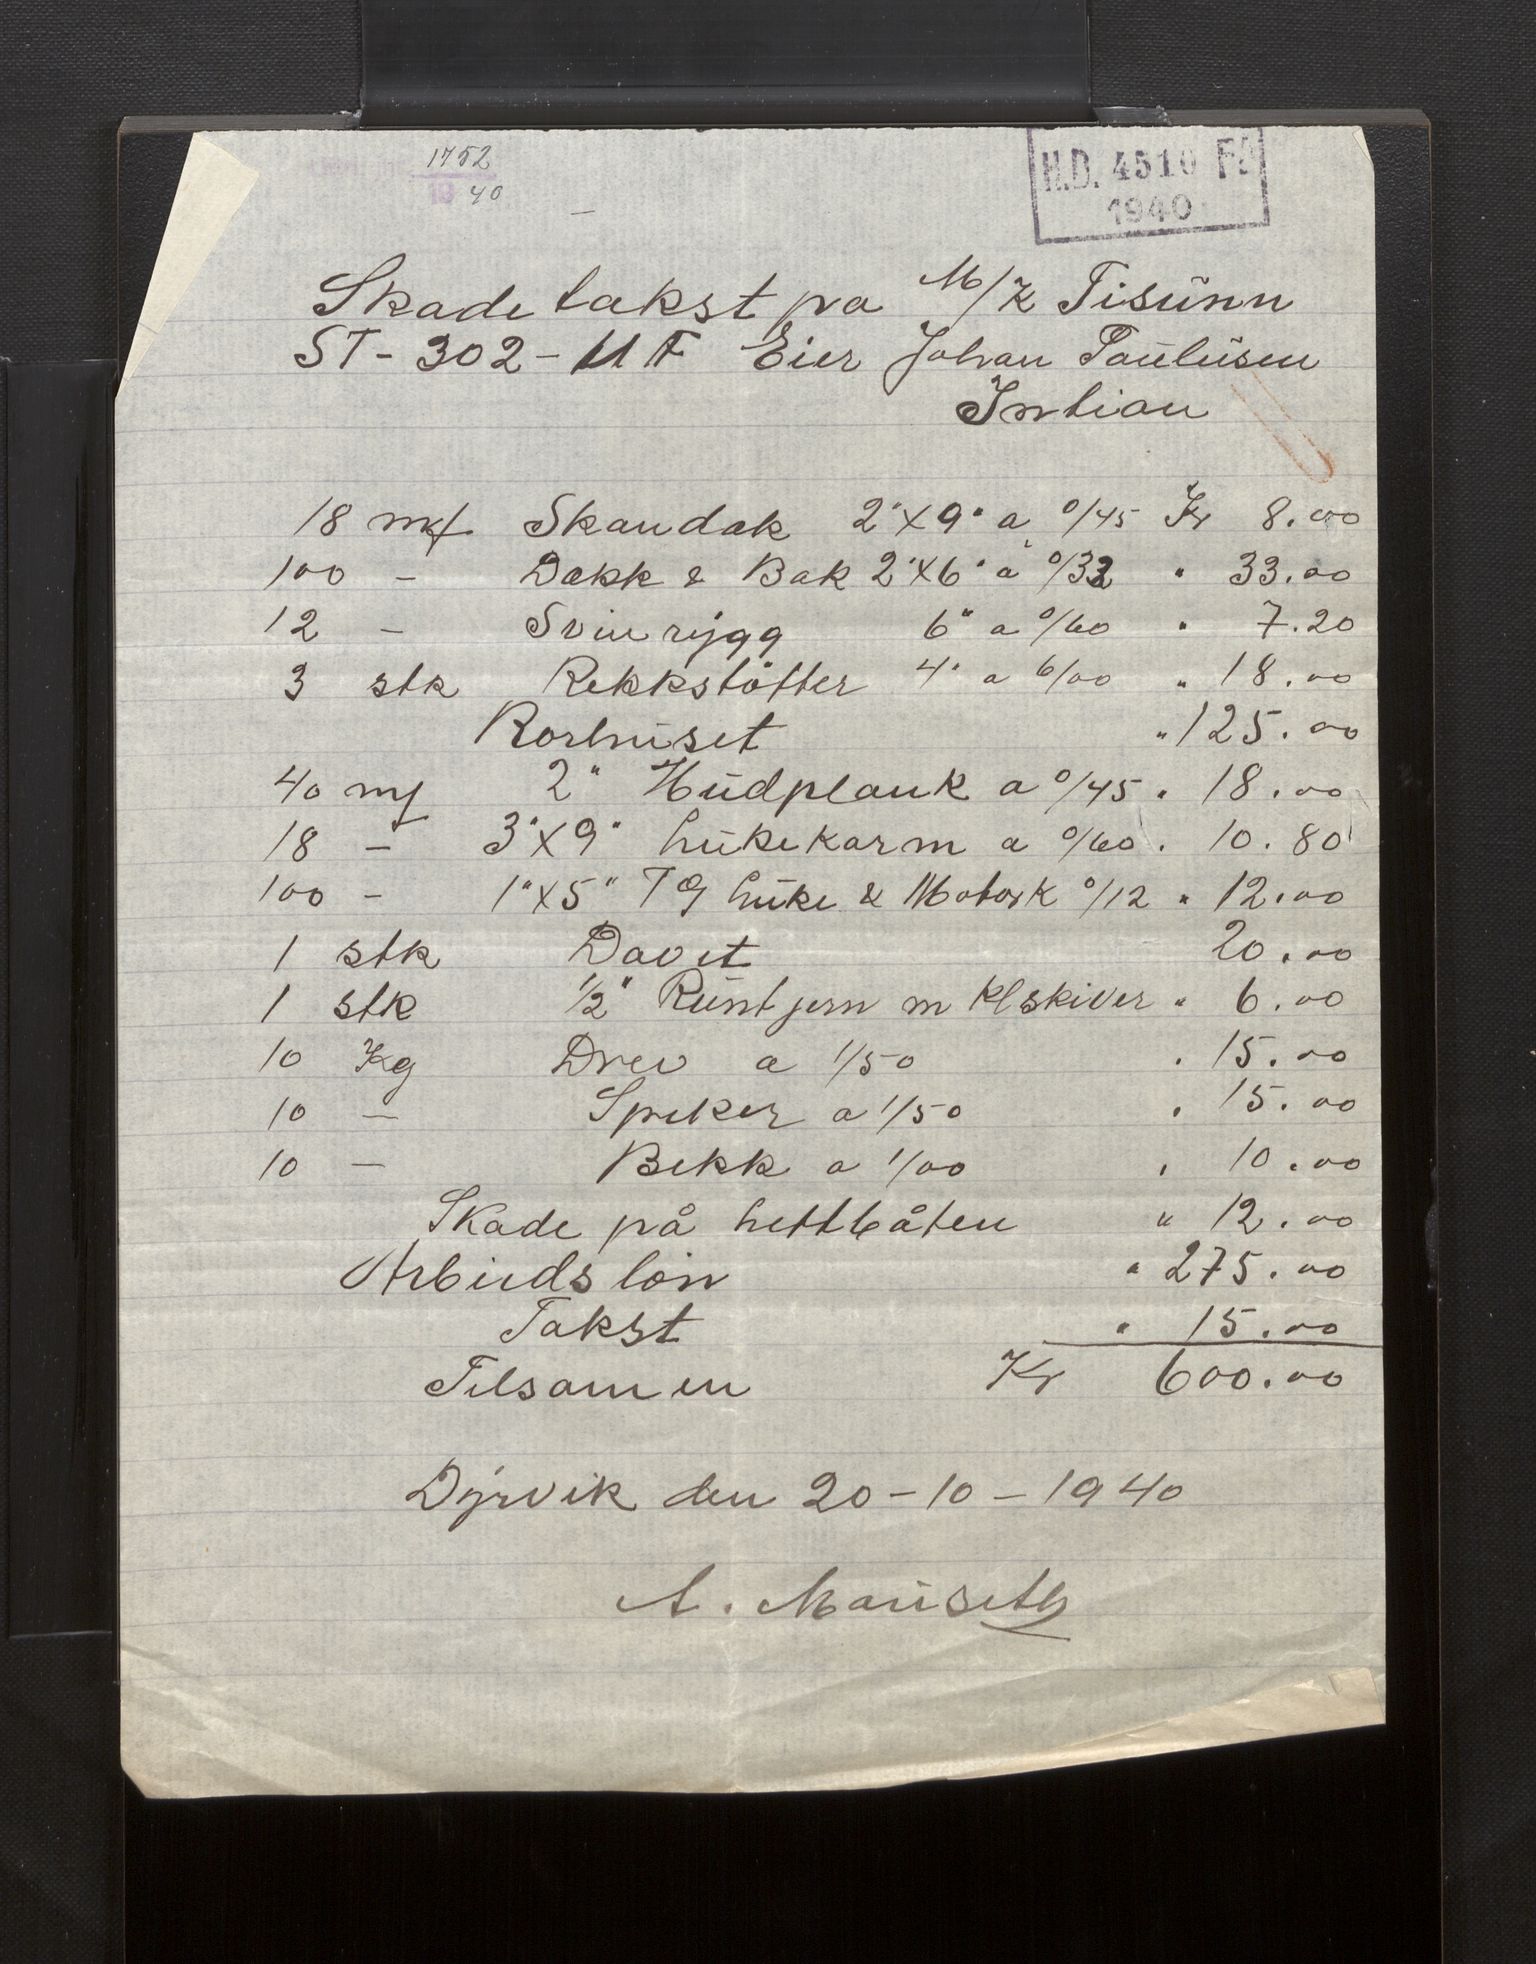 1752
19 40
H.D. 4510 FD
1940
Skadetakst pa M/K Tisünn
ST-302-UF Eier Johan Paulüsen
Intian
18 mf Skandæk 2"X9" a 0/45 Kr 8.00
100 - Dækk & Bak 2"X6" a 0/33 " 33.00
12 - Svinrygg 6" a 0/60 " 7.20
3 stk Rekkstötter 4" a 6/00 " 18.00
Rorhüset " 125.00
40 mf 2" Hüdplank a 0/45 " 18.00
18 - 3"X9" Lükekarm a 0/60 " 10.80
100 - 1"X5" TG Lüke & Motork 0/12 " 12.00
1 stk Davit 20.00
1 stk 1/2" Rüntjern m Klskiver " 6.00
10 Kg Drev a 1/50 " 15.00
10 - Spiker a 1/50 " 15.00
10 - Bekk a 1/00 " 10.00
Skade på lettbåten " 12.00
Arbeidslön " 275.00
Takst " 15.00
Tilsamen Kr 600.00
Dyrvik den 20-10-1940
A. Mauseth